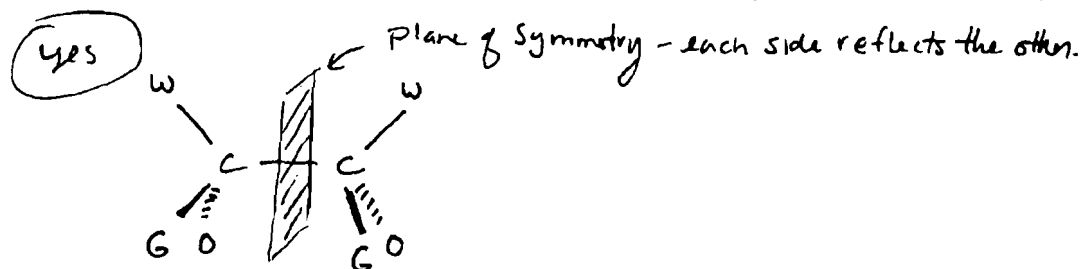 yes
Plane of Symmetry - each side reflects the other.
W W
C C
G O G O